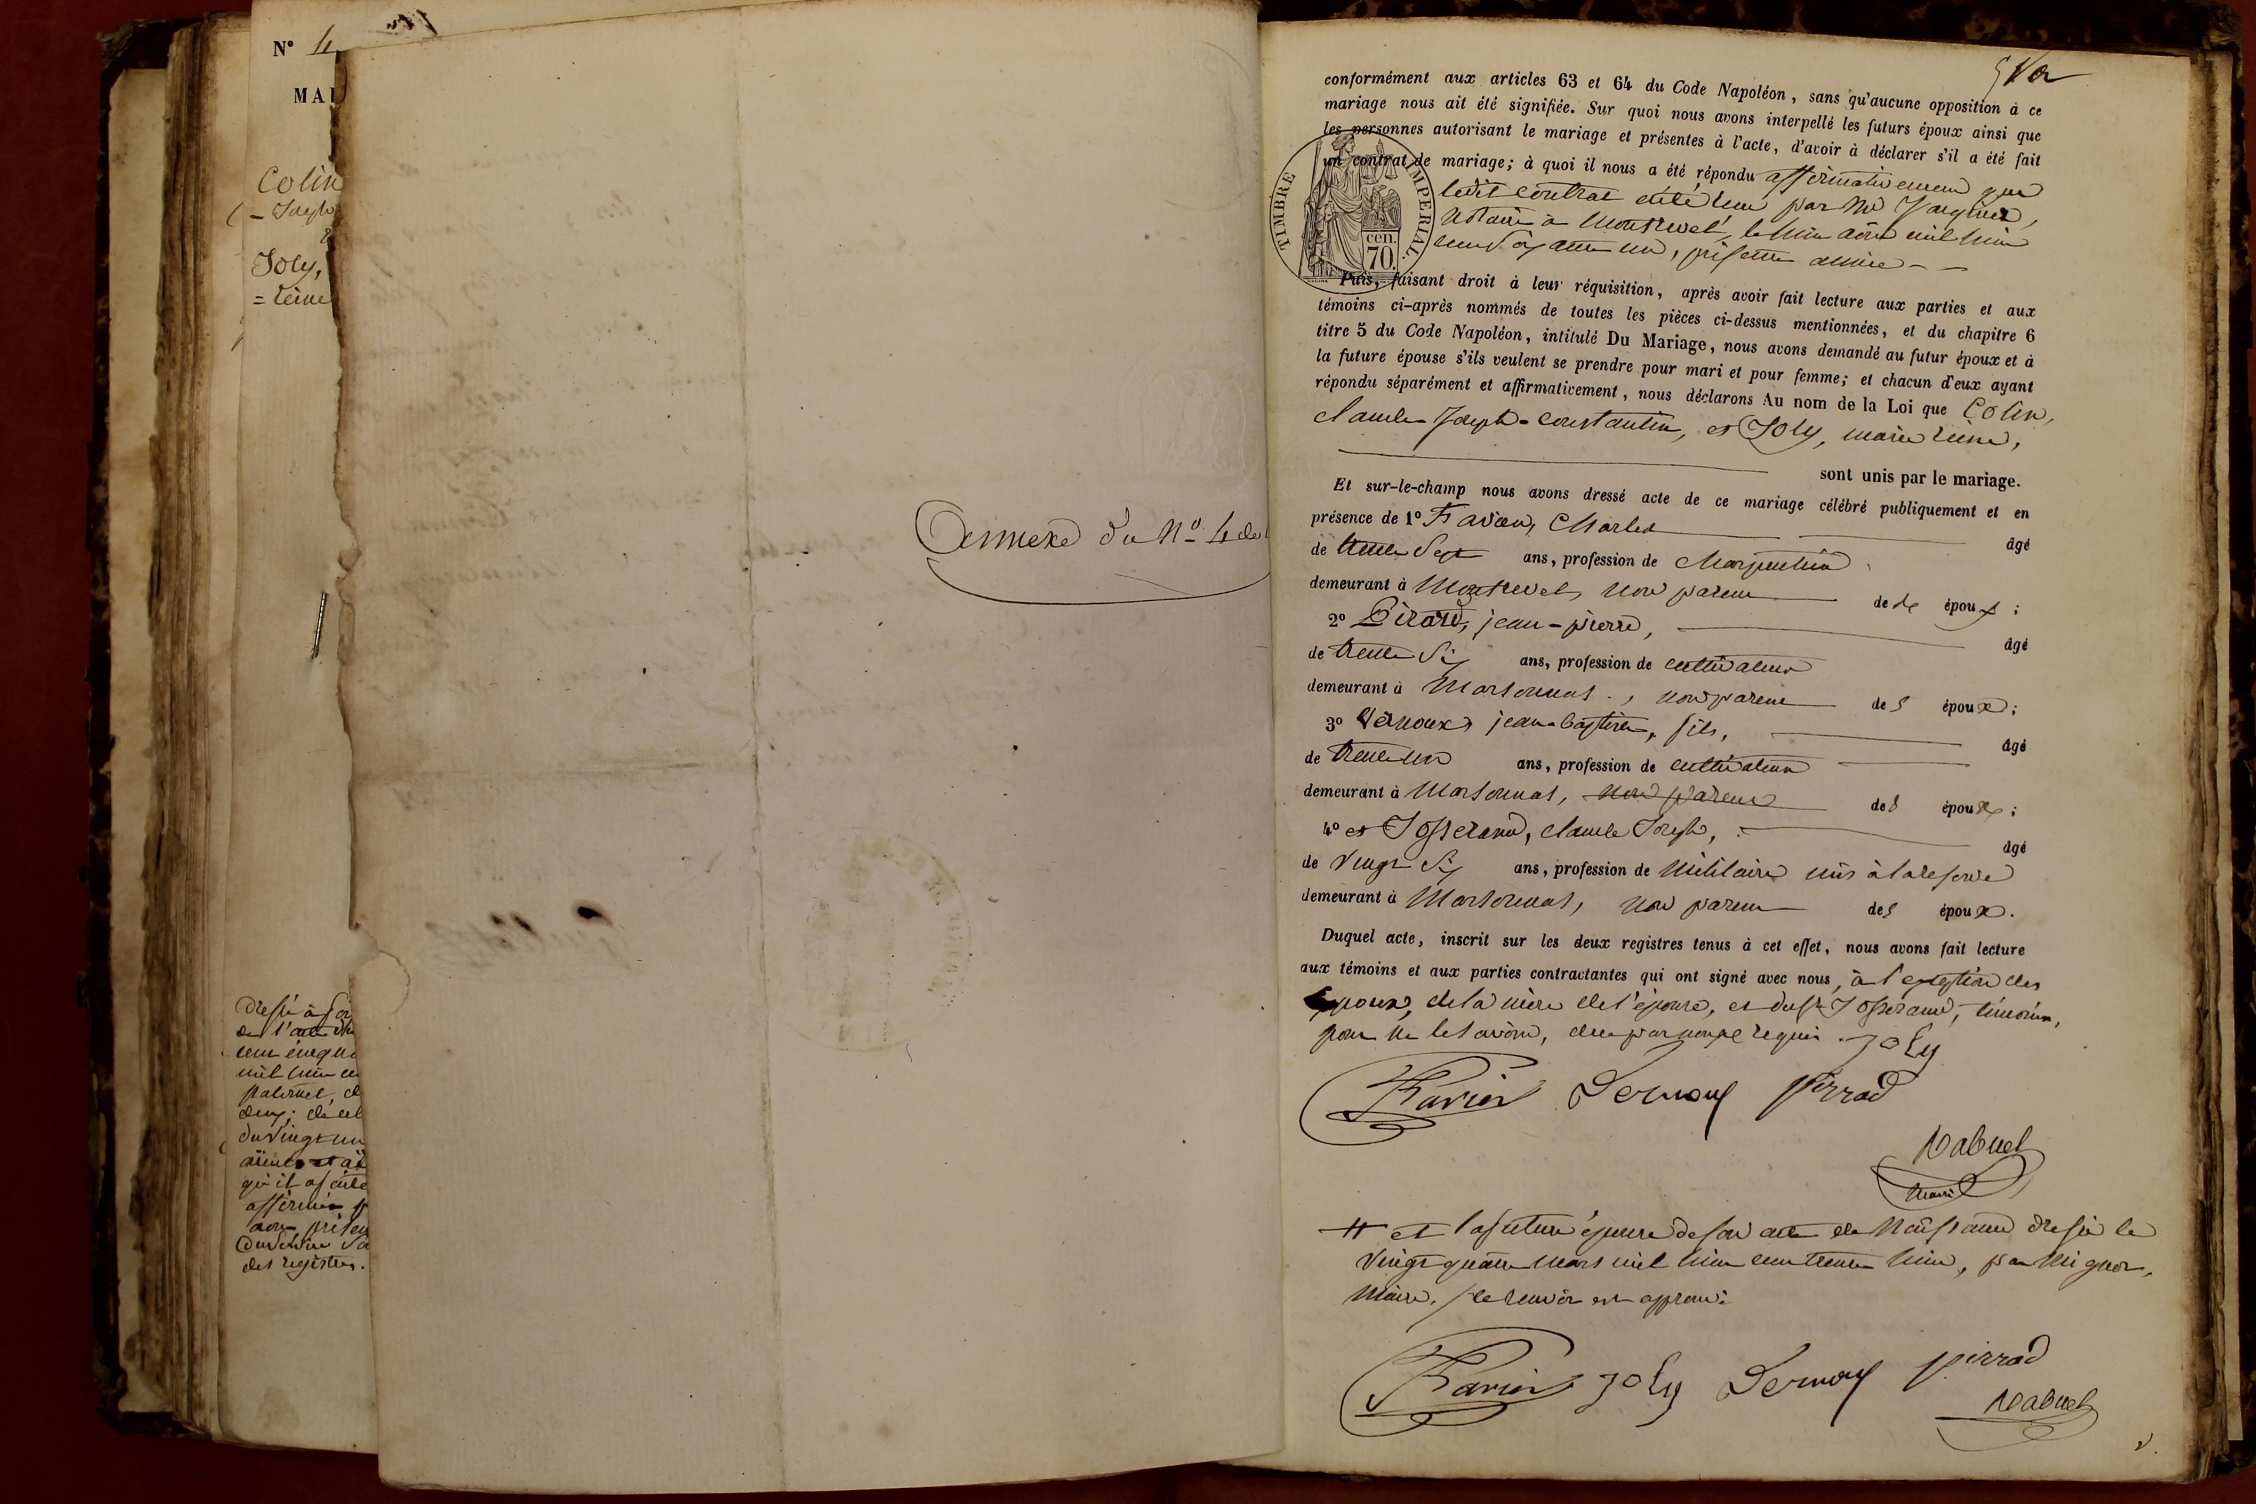 N° 4
MAI
Colin
- Joseph
Joly,
= reine
dressé à
de l'acte
cent cinqu
mil huit
paternel,
deux; de cel
du vingt un
aïeuls et aï
qu'il a
affirmé
des registres.
Annexe du N° 4 de
conformément aux articles 63 et 64 du Code Napoléon, sans qu'aucune opposition à ce
mariage nous ait été signifiée. Sur quoi nous avons interpellé les futurs époux ainsi que
les personnes autorisant le mariage et présentes à l'acte, d'avoir à déclarer s'il a été fait
un contrat de mariage; à quoi il nous a été répondu affirmativement que
ledit contrat a été reçu par Me
notaire à Montrevel, le huit août mil huit
cent soixante un, présente année - -
TIMBRE IMPERIAL.
cen.
70.
Puis, faisant droit à leur réquisition, après avoir fait lecture aux parties et aux
témoins ci-après nommés de toutes les pièces ci-dessus mentionnées, et du chapitre 6
titre 5 du Code Napoléon, intitulé Du Mariage, nous avons demandé au futur époux et à
la future épouse s'ils veulent se prendre pour mari et pour femme; et chacun d'eux ayant
répondu séparément et affirmativement, nous déclarons Au nom de la Loi que Colin,
claude-Joseph-constantin, et Joly, marie reine,
sont unis par le mariage.
Et sur-le-champ nous avons dressé acte de ce mariage célébré publiquement et en
présence de 1° Favier, Charles âgé
de trente sept ans, profession de Charpentier
demeurant à Montrevel, non parent de de époux ;
2° Pirard, jean-pierre, âgé
de trente six ans, profession de cultivateur
demeurant à Marsonnas, non parent des époux;
3° Vernoux, jean-baptiste, fils, âgé
de trente un ans, profession de cultivateur
demeurant à Marsonnas, non parent des époux;
4° et Josserand, claude Joseph, âgé
de vingt six ans, profession de Militaire mis à la reserve
demeurant à Marsonnas, non parent des époux.
Duquel acte, inscrit sur les deux registres tenus à cet effet, nous avons fait lecture
aux témoins et aux parties contractantes qui ont signé avec nous, à l'exception des
époux, de la mère de l'épouse, et du sr Josserand, témoin,
pour ne le savoir, de ce par nous requis. Joly
Favier Vernoux pirrad
Nabuel
Maire
# et la future épouse de son acte de Naissance dressé le
vingt quatre mars mil huit cent trente huit, par Mignon,
Maire. / le renvoi est approuvé
Favier Joly Vernoux pirrad
Nabuel